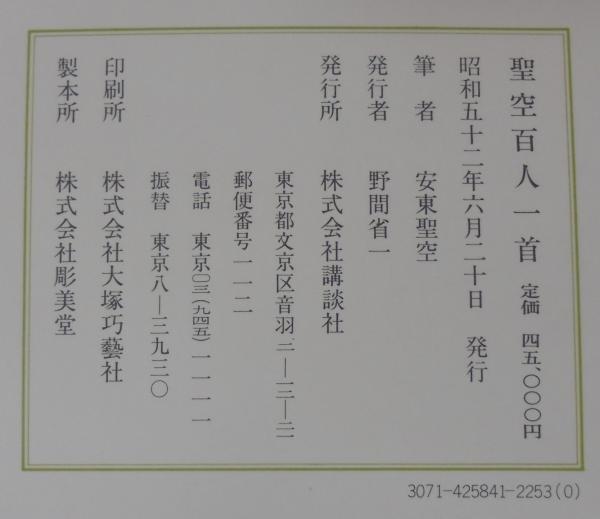 聖空百人一首 定価 四五、〇〇〇円
昭和五十二年六月二十日 発行
筆者 安東聖空
発行者 野間省一
発行所 株式会社講談社
東京都文京区音羽二—一二—二一
郵便番号一一二
電話 東京〇三(九四五)一一一一
振替 東京八—三九三〇
印刷所 株式会社大塚巧藝社
製本所 株式会社彫美堂
3071-425841-2253(0)